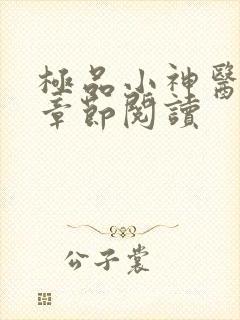 極品小神醫
章節閱讀
公子裳